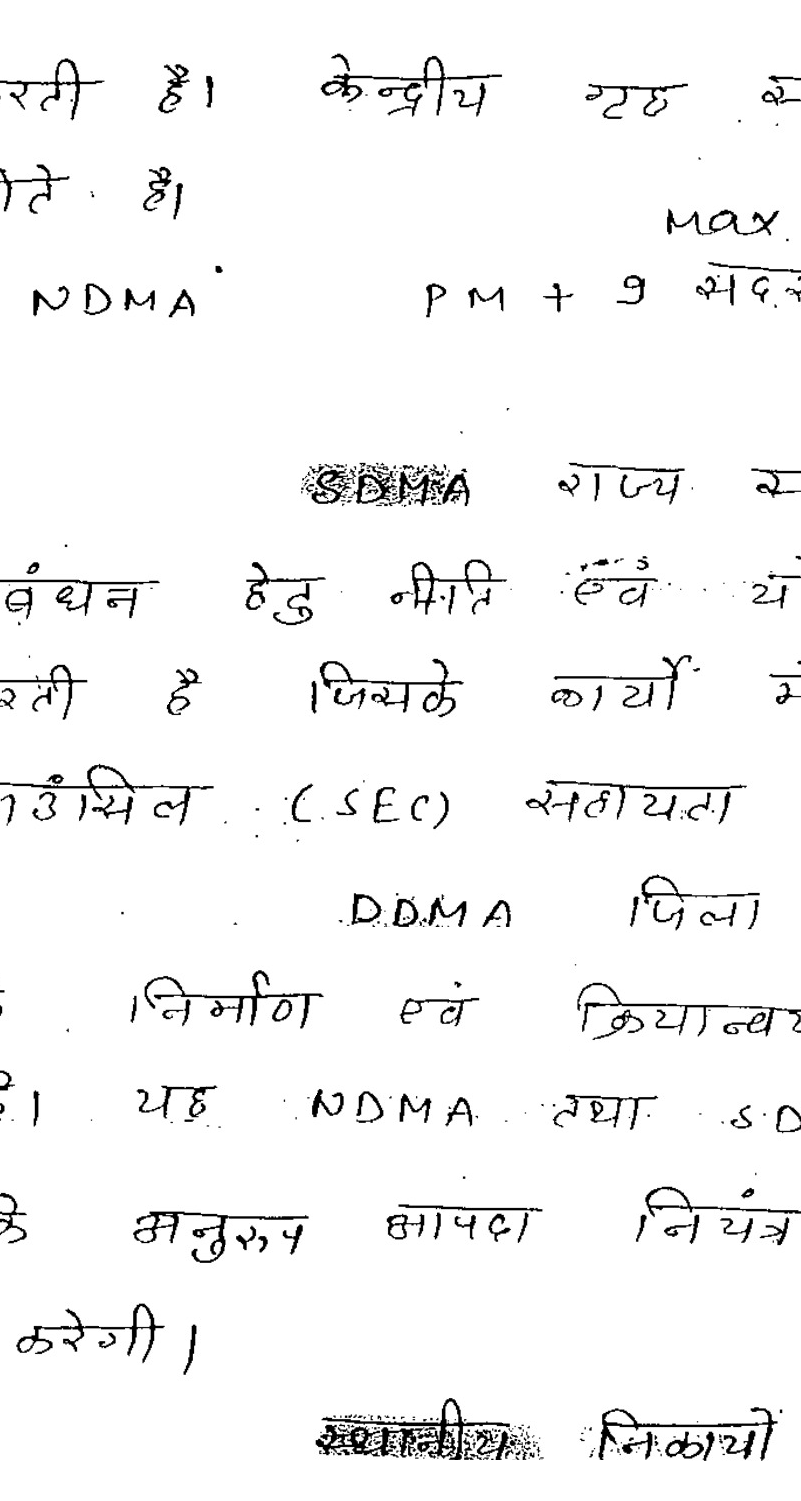 रती है। केन्द्रीय गृह स
ोते है।
Max.
NDMA PM + 9 सदस
SDMA राज्य स
बंधन हेतु नीति एवं यो
रती है जिसके कार्यों में
ाउंसिल (SEC) सहायता
DDMA जिला
निर्माण एवं क्रियान्वय
है। यह NDMA तथा SD
के अनुरूप आपदा नियंत्र
करेगी।
स्थानीय निकायों